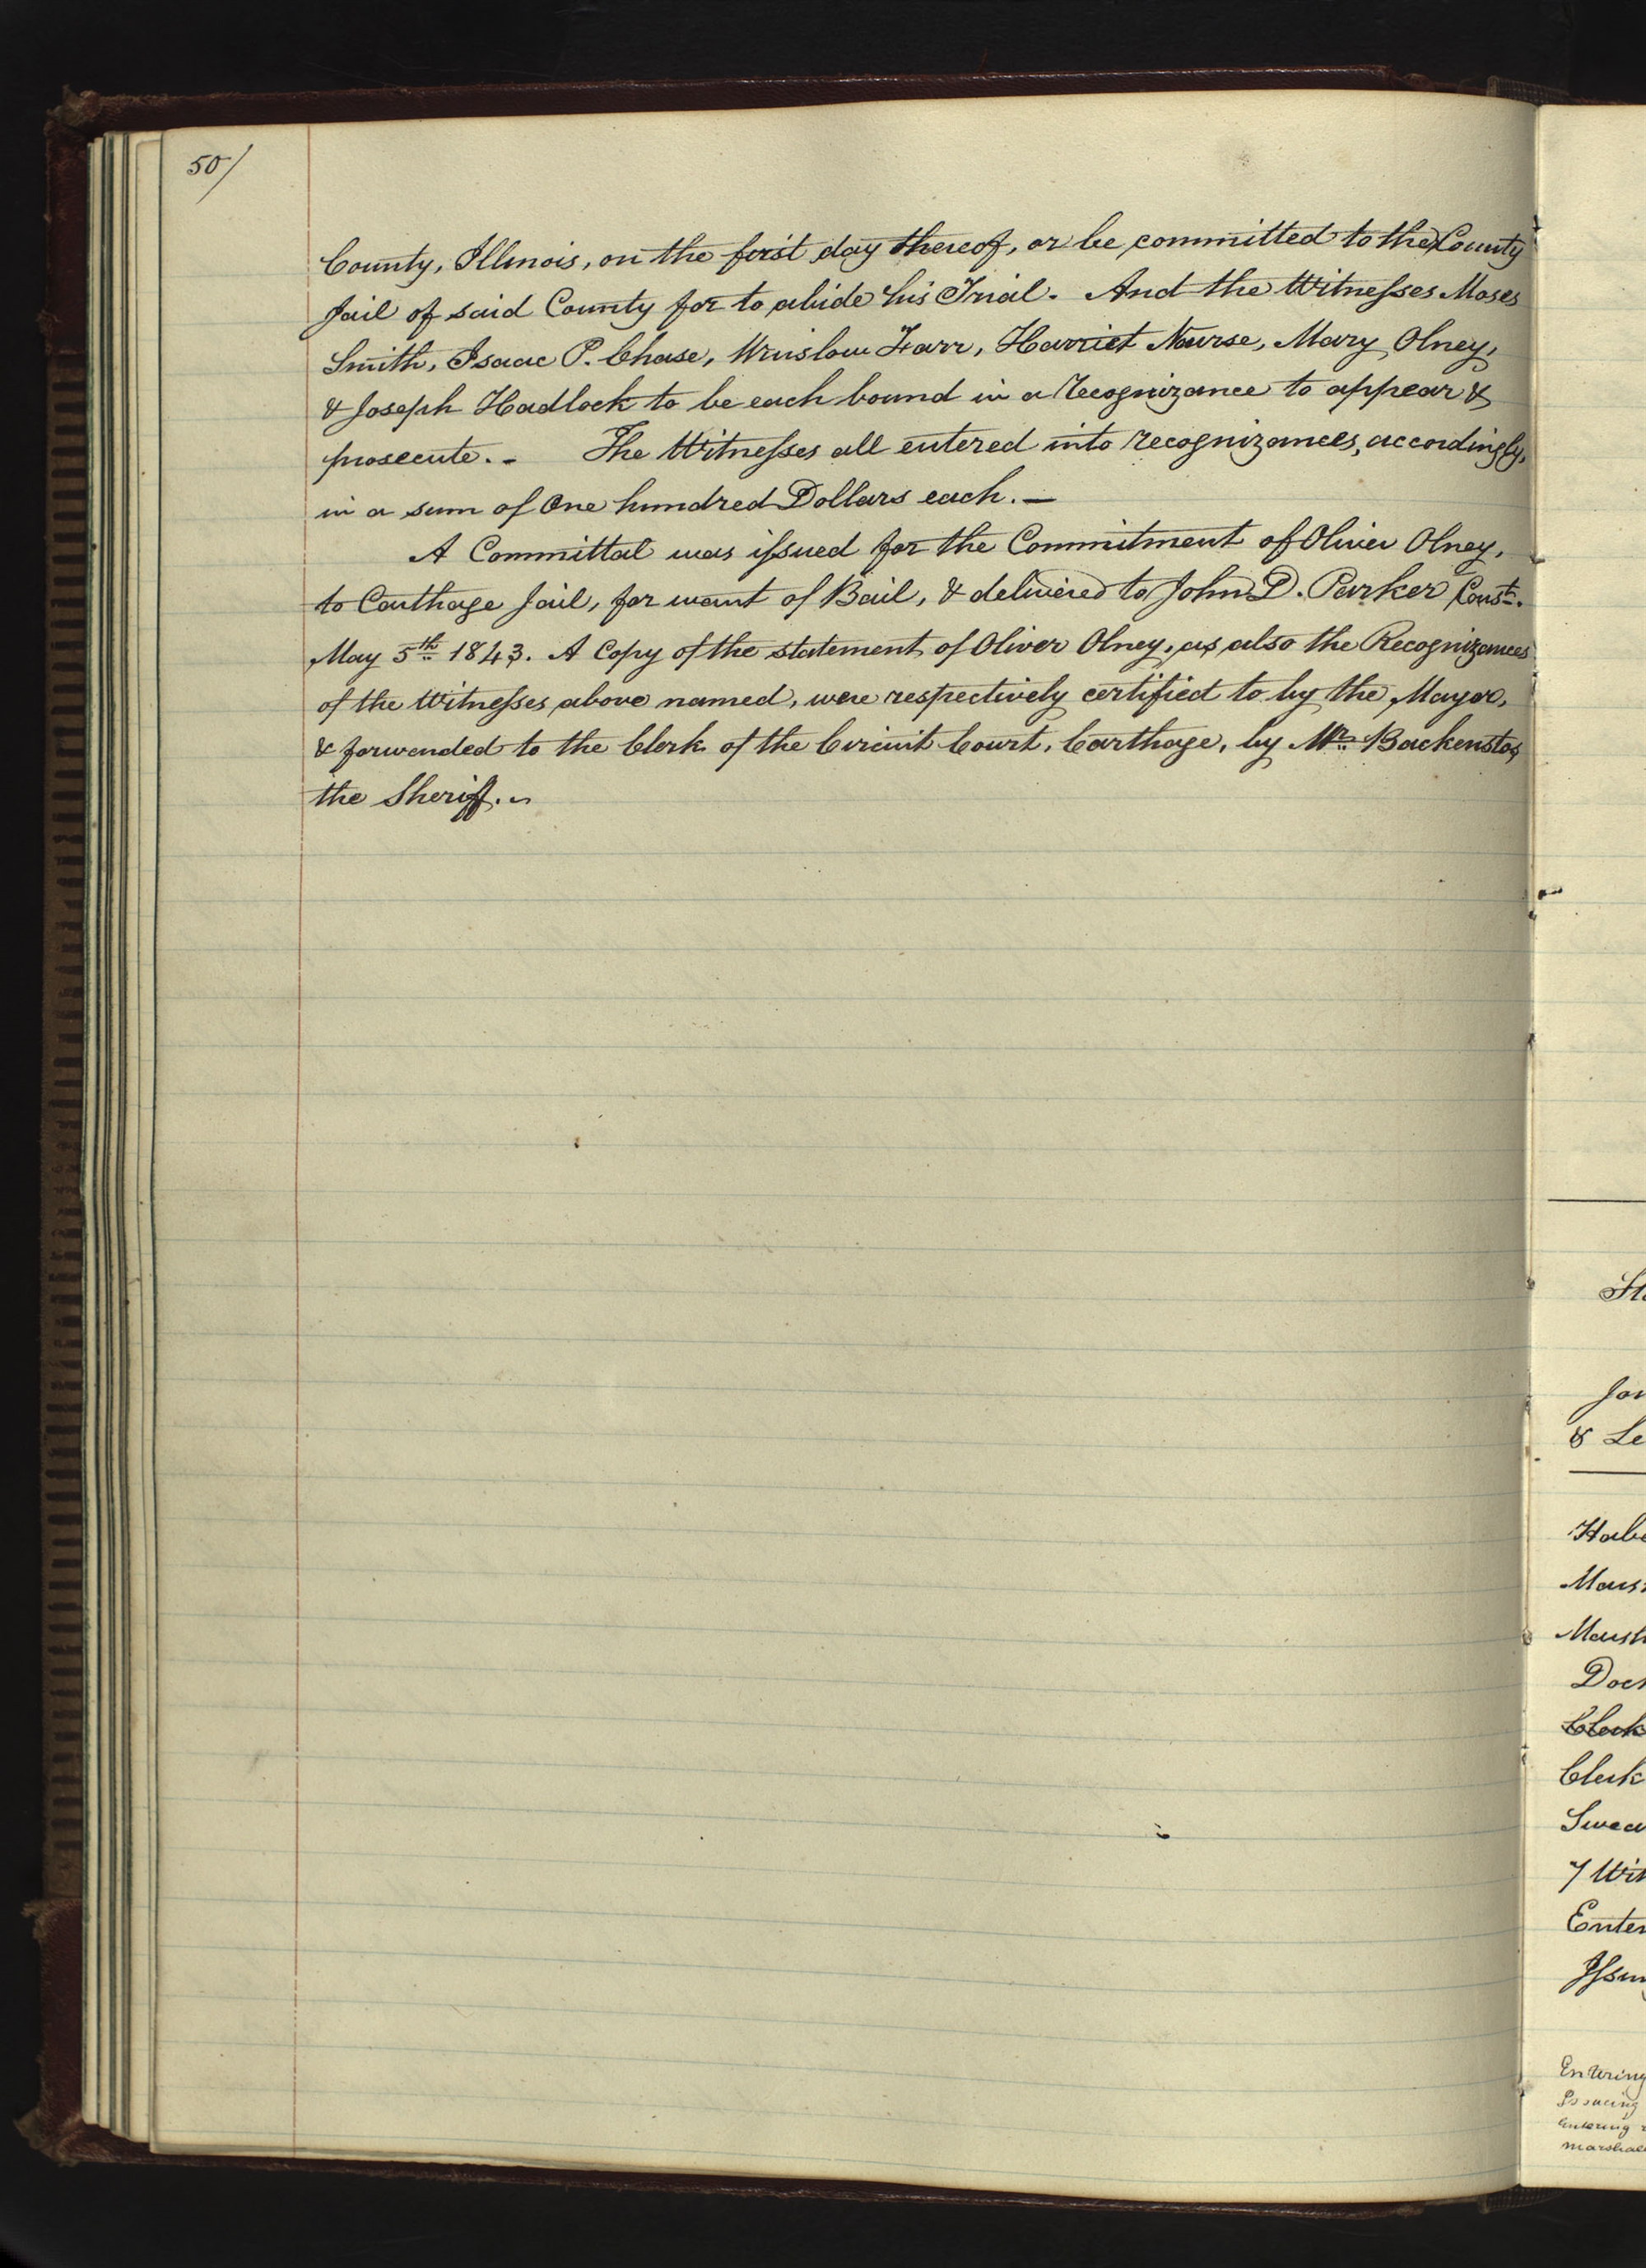 50/
County, Illinois, on the first day thereof, or be committed to the County
Jail of said County for to abide his Trial. And the Witnesses Moses
Smith, Isaac P. Chase, Winslow Farr, Harriet Nourse, Mary Olney,
& Joseph Hadlock to be each bound in a recognizance to appear &
prosecute. - The Witnesses all entered into recognizances, accordingly,
in a sum of One hundred Dollars each. —
A Committal was issued for the Commitment of Oliver Olney,
to Carthage Jail, for want of Bail, & delivered to John D. Parker Const.
May 5th 1843. A Copy of the statement of Oliver Olney, as also the Recognizances
of the Witnesses above named, were respectively certified to by the Mayor,
& forwarded to the Clerk of the Circuit Court, Carthage, by Mr. Backenstos
the Sheriff.
& Le
Clerk
7 Wit
Entering
Issuing